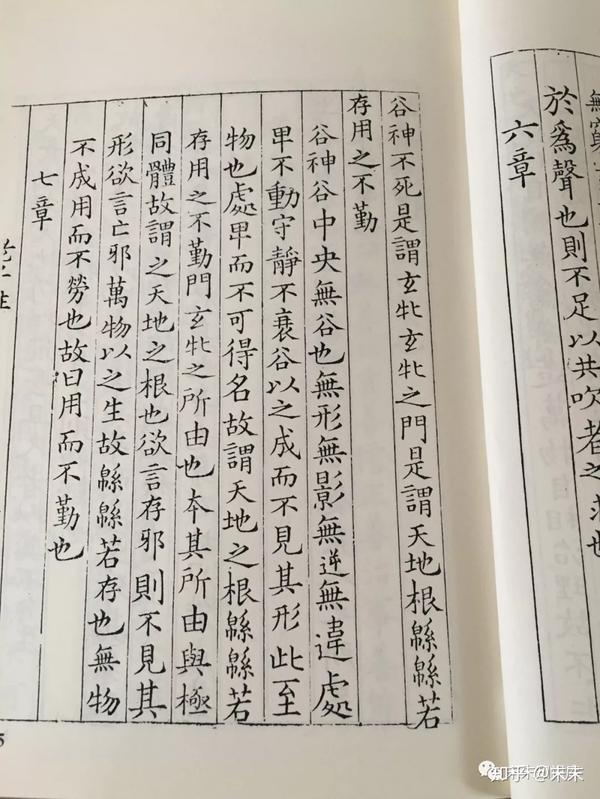 無窮
於爲聲也則不足以共吹者之求也
六章
谷神不死是謂玄牝玄牝之門是謂天地根緜緜若
存用之不勤
谷神谷中央無谷也無形無影無逆無違處
卑不動守靜不衰谷以之成而不見其形此至
物也處卑而不可得名故謂天地之根緜緜若
存用之不勤門玄牝之所由也本其所由與極
同體故謂之天地之根也欲言存邪則不見其
形欲言亡邪萬物以之生故緜緜若存也無物
不成用而不勞也故曰用而不勤也
七章
5
知乎